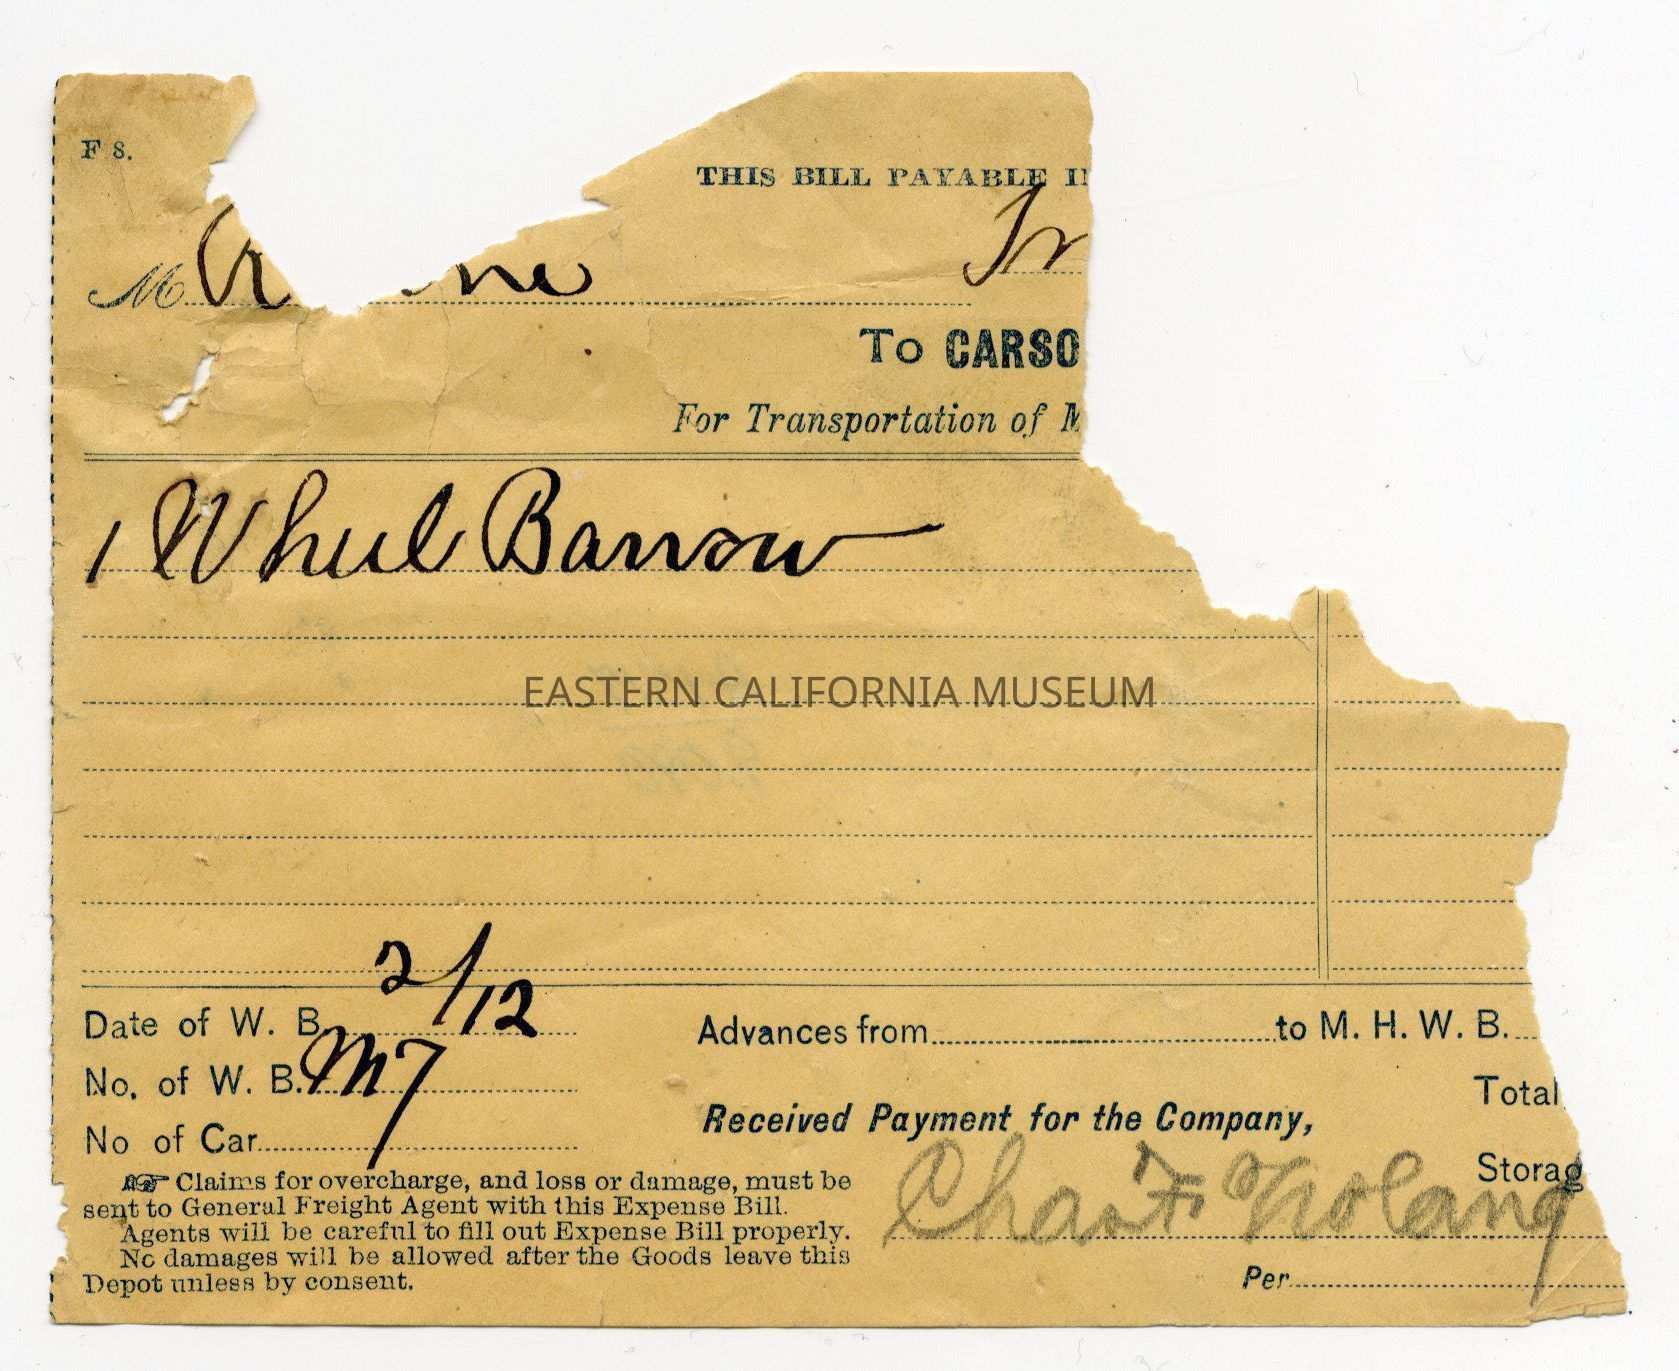 F 8.
THIS BILL PAYABLE I
M
To CARSO
For Transportation of M
1 Wheel Barrow
EASTERN CALIFORNIA MUSEUM
Date of W. B. 2/12
Advances from to M. H. W. B.
No. of W. B. M7
Total
No of Car
Received Payment for the Company,
Storag
☞ Claims for overcharge, and loss or damage, must be
sent to General Freight Agent with this Expense Bill.
Agents will be careful to fill out Expense Bill properly.
No damages will be allowed after the Goods leave this
Depot unless by consent.
Chas
Per